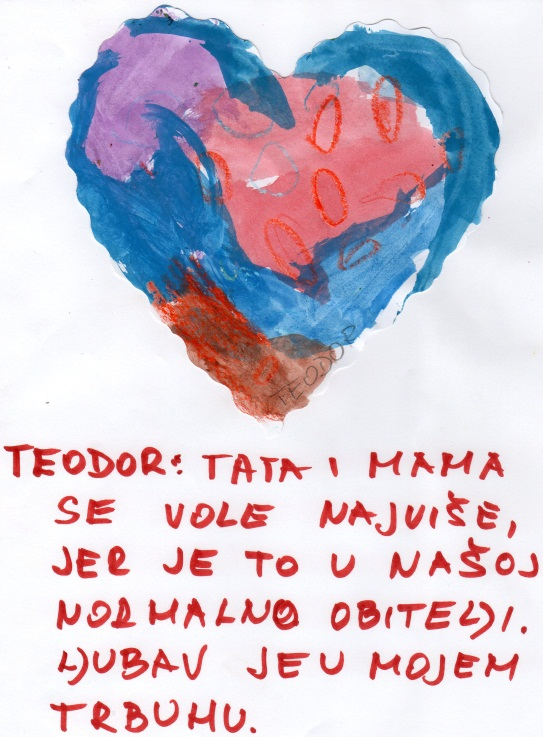 TEODOR
TEODOR: TATA I MAMA
SE VOLE NAJVIŠE,
JER JE TO U NAŠOJ
NORMALNO OBITELJI.
LJUBAV JE U MOJEM
TRBUHU.